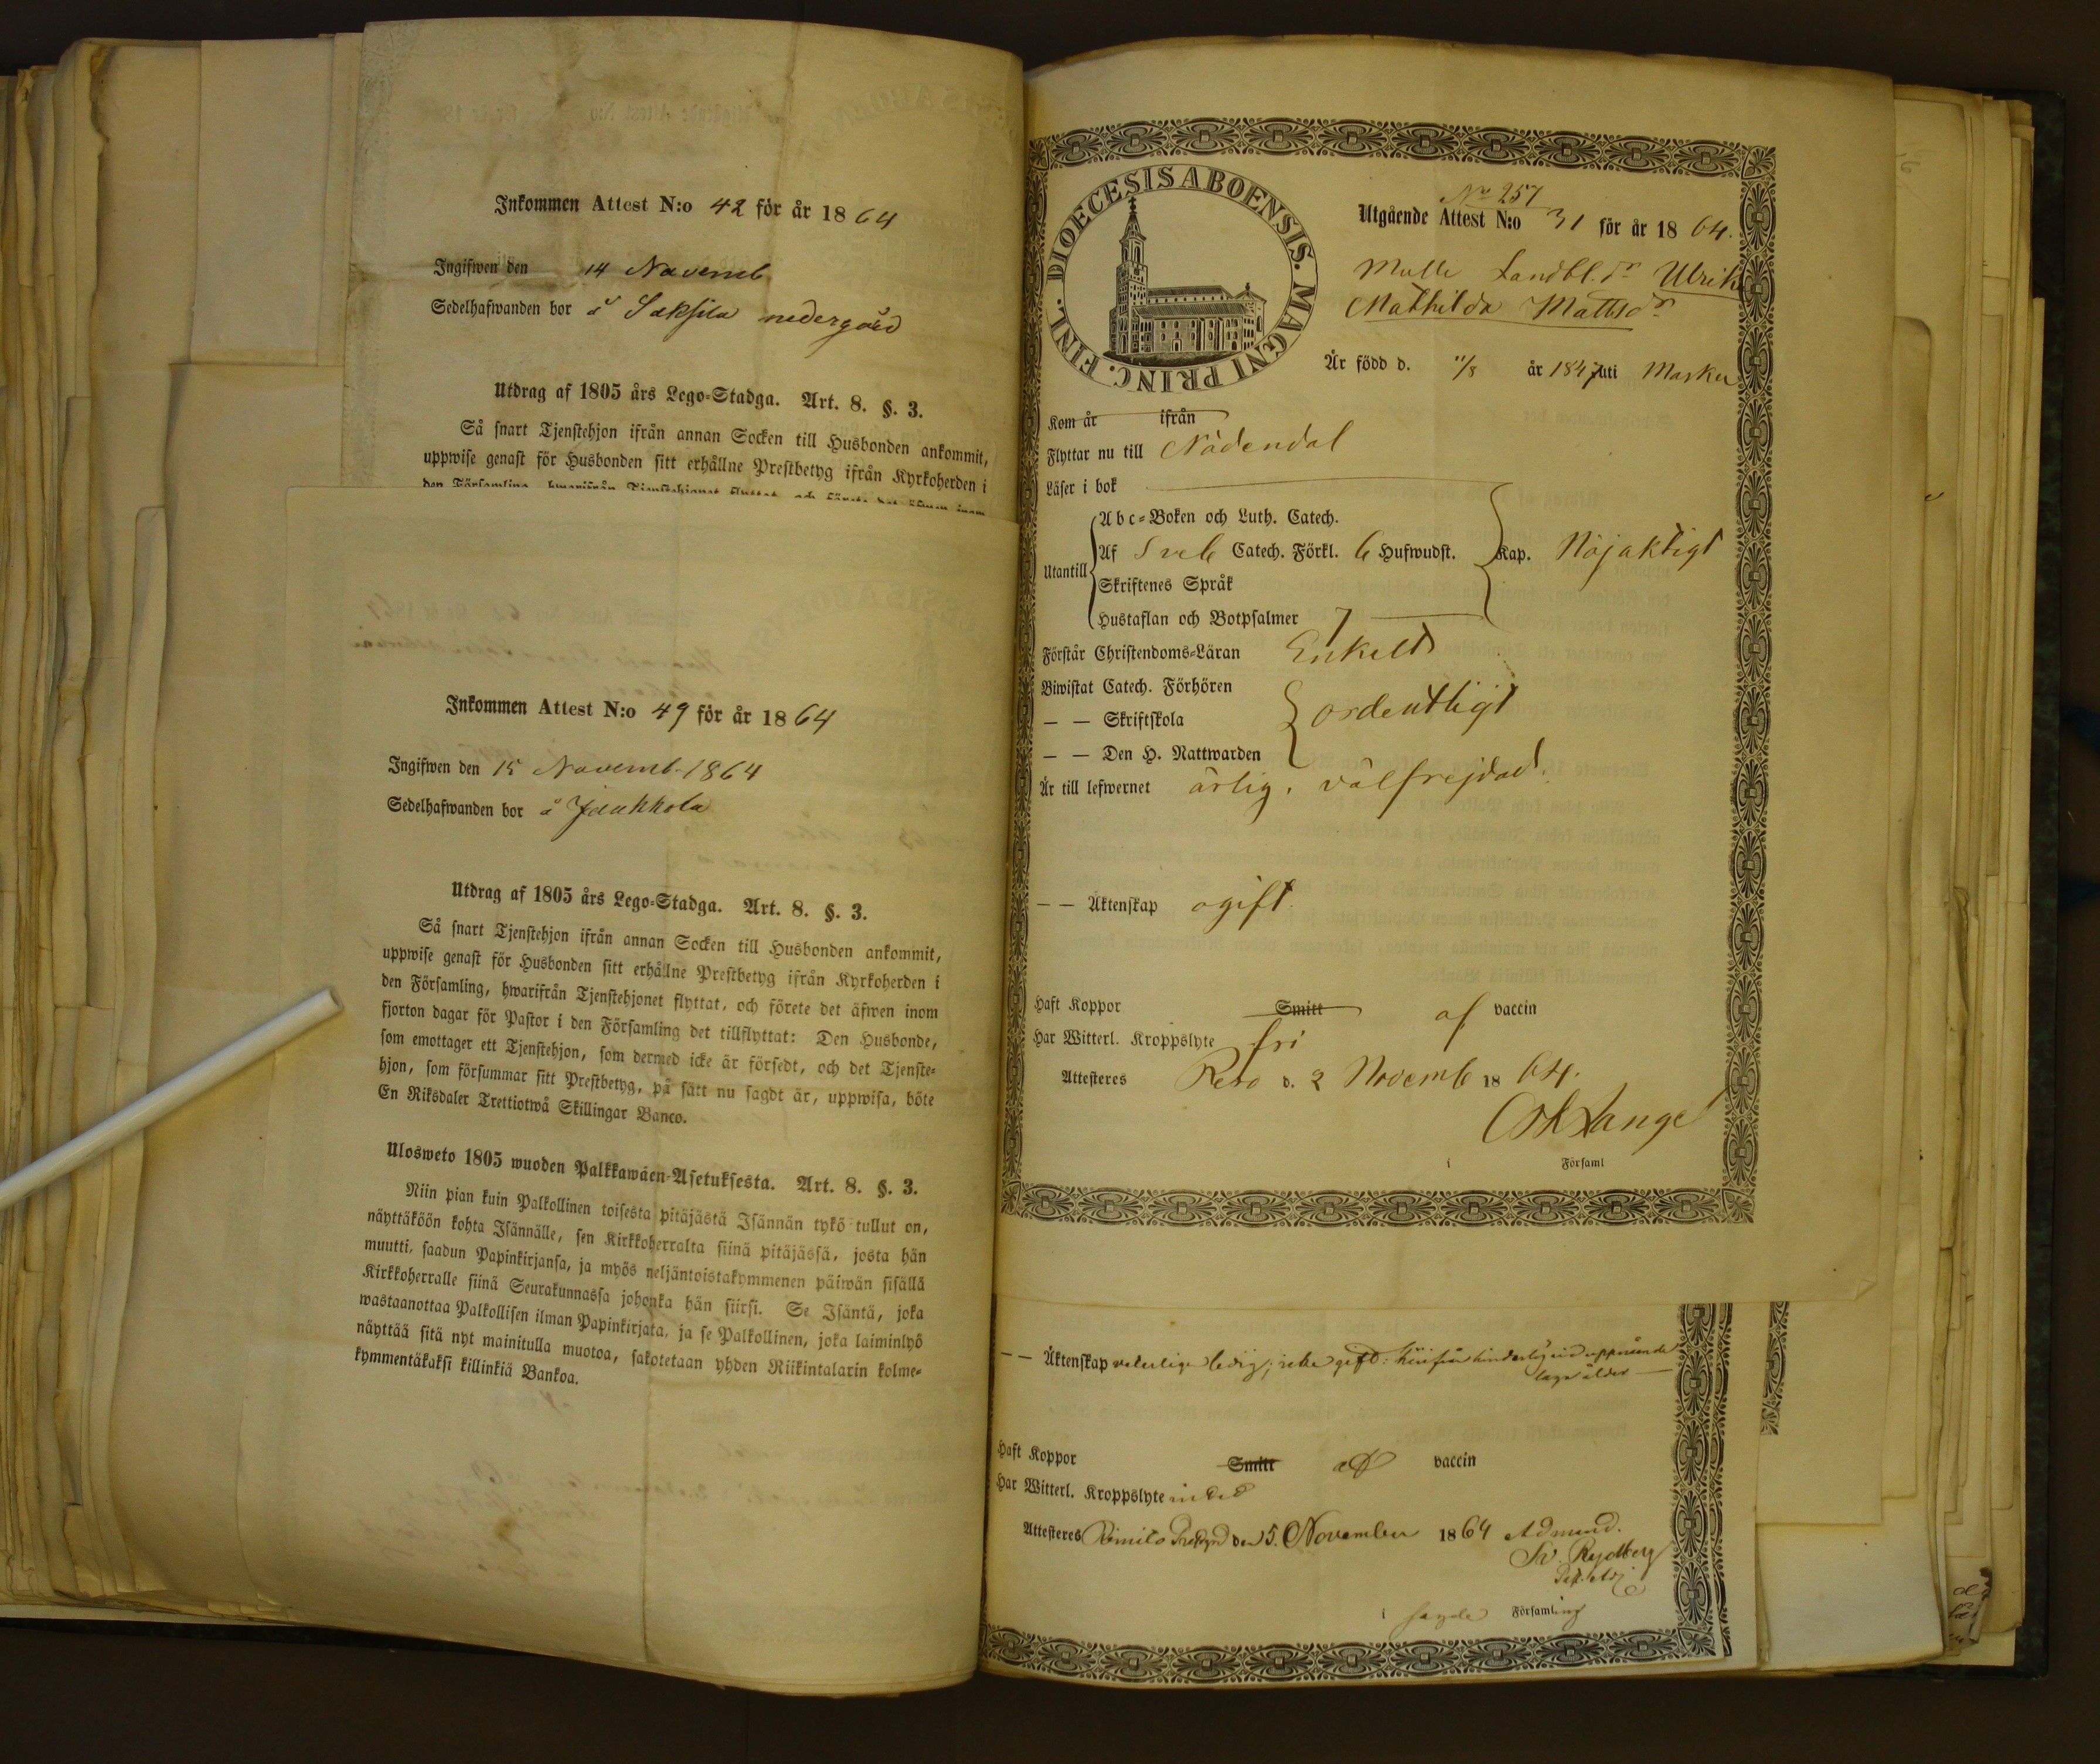 Inkommen Attest N:o 42 för år 1864
Ingifwen den 14 Novemb
Sedelhafwanden bor å Saksila nedergård
Utdrag af 1805 års Lego-Stadga. Art. 8. §. 3.
Så snart Tjenstehjon ifrån annan Socken till Husbonden ankommit,
uppwise genast för Husbonden sitt erhållne Prestbetyg ifrån Kyrkoherden i
den Församling, hwarifrån Tjenstehjonet flyttat, och förete det äfwen inom
Inkommen Attest N:o 49 för år 1864
Ingifwen den 15 Novemb. 1864
Sedelhafwanden bor å Jaukkola
Utdrag af 1805 års Lego-Stadga. Art. 8. §. 3.
Så snart Tjenstehjon ifrån annan Socken till Husbonden ankommit,
uppwise genast för Husbonden sitt erhållne Prestbetyg ifrån Kyrkoherden i
den Församling, hwarifrån Tjenstehjonet flyttat, och förete det äfwen inom
fjorton dagar för Pastor i den Församling det tillflyttat: Den Husbonde,
som emottager ett Tjenstehjon, som dermed icke är försedt, och det Tjenste-
hjon, som försummar sitt Prestbetyg, på sätt nu sagdt är, uppwisa, böte
En Riksdaler Trettiotwå Skillingar Banco.
Ulosweto 1805 wuoden Palkkawäen-Asetuksesta. Art. 8. §. 3.
Niin pian kuin Palkollinen toisesta pitäjästä Isännän tykö tullut on,
näyttäköön kohta Isännälle, sen Kirkkoherralta siinä pitäjässä, josta hän
muutti, saadun Papinkirjansa, ja myös neljäntoistakymmenen päiwän sisällä
Kirkkoherralle siinä Seurakunnassa johonka hän siirsi. Se Isäntä, joka
wastaanottaa Palkollisen ilman Papinkirjata, ja se Palkollinen, joka laiminlyö
näyttää sitä nyt mainitulla muotoa, sakotetaan yhden Riikintalarin kolme-
kymmentäkaksi killinkiä Bankoa.
DIOECESIS ABOENSIS. MAGNI PRINC. FINL.
No 257
Utgående Attest N:o 31 för år 1864.
Mulli Landbl. dr Ulrika
Mathilda Mattsdr
Är född d. 11/8 år 1847 uti Masku
Kom år ifrån
Flyttar nu till Nådendal
Läser i bok
Abc-Boken och Luth. Catech.
Af Sveb Catech. Förkl. 6 Hufwudst. Kap. Nöjaktigt
Utantill
Skriftenes Språk
Hustaflan och Botpsalmer 7
Förstår Christendoms-Läran Enkelt
Biwistat Catech. Förhören
— — Skriftskola ordentligt
— — Den H. Nattwarden
Är till lefwernet ärlig, välfrejdad.
— — Äktenskap ogift.
Haft Koppor Smitt af vaccin
Har Witterl. Kroppslyte fri
Attesteres Reso d. 2 Novemb 1864.
Lange
i Församl
— — Äktenskap veterlige ledig; icke gift: härifrån hinderslös vid uppnående
laga ålder
Haft Koppor Smitt af vaccin
Har Witterl. Kroppslyte intet
Attesteres Rimito Prestgrd den 5. November 1864 Admund.
Rydberg
i sagde Församling